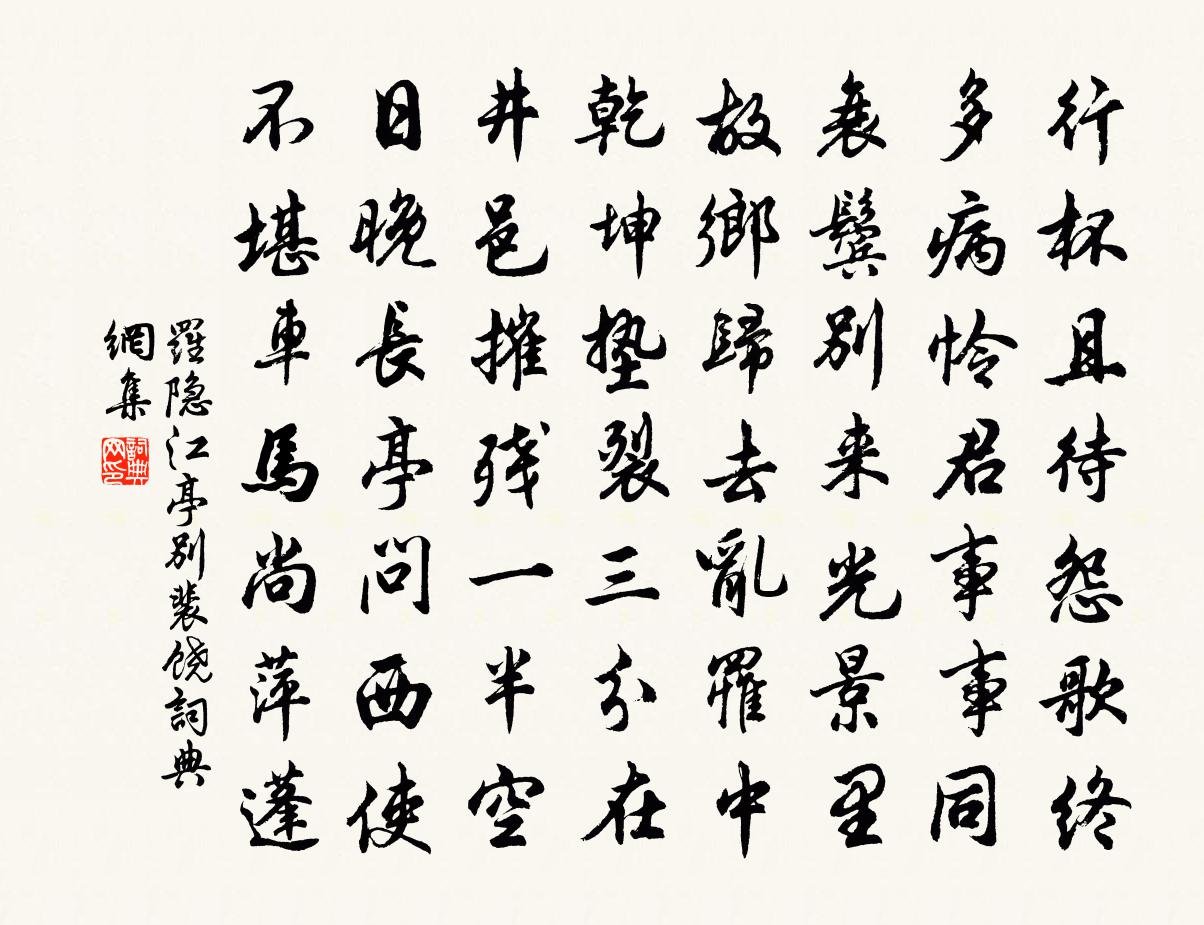 行杯且待怨歌终
多病怜君事事同
衰鬓别来光景里
故鄉歸去亂罹中
乾坤墊裂三分在
井邑摧残一半空
日晚長亭問西使
不堪車馬尚萍蓬
羅隐江亭别裴饶詞典
網集
詞典
网印